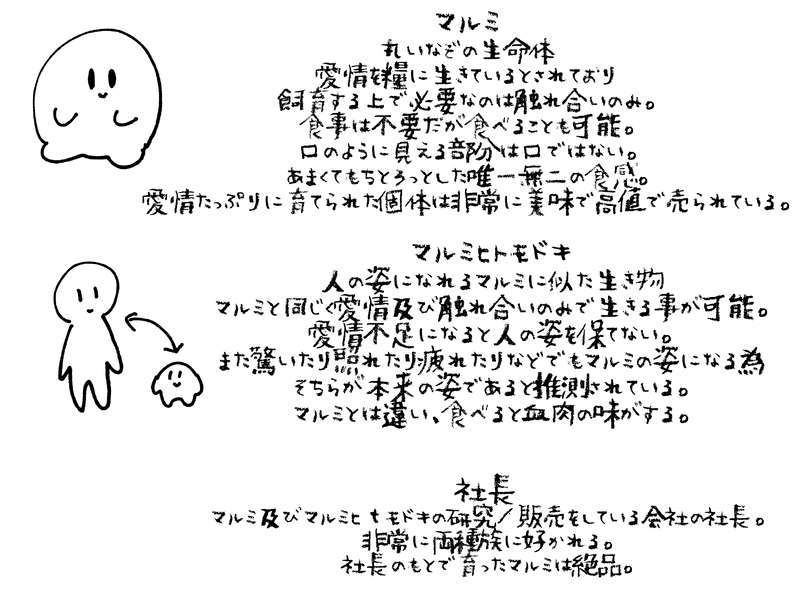 マルミ
丸いなぞの生命体
愛情を糧に生きているとされており
飼育する上で必要なのは触れ合いのみ。
食事は不要だが食べることも可能。
口のように見える部分は口ではない。
あまくてもちとろっとした唯一無二の食感。
愛情たっぷりに育てられた個体は非常に美味で高値で売られている。
マルミヒトモドキ
人の姿になれるマルミに似た生き物
マルミと同じく愛情及び触れ合いのみで生きる事が可能。
愛情不足になると人の姿を保てない。
また驚いたり照れたり疲れたりなどでもマルミの姿になる為
そちらが本来の姿であると推測されている。
マルミとは違い、食べると血肉の味がする。
社長
マルミ及びマルミヒトモドキの研究/販売をしている会社の社長。
非常に両種族に好かれる。
社長のもとで育ったマルミは絶品。